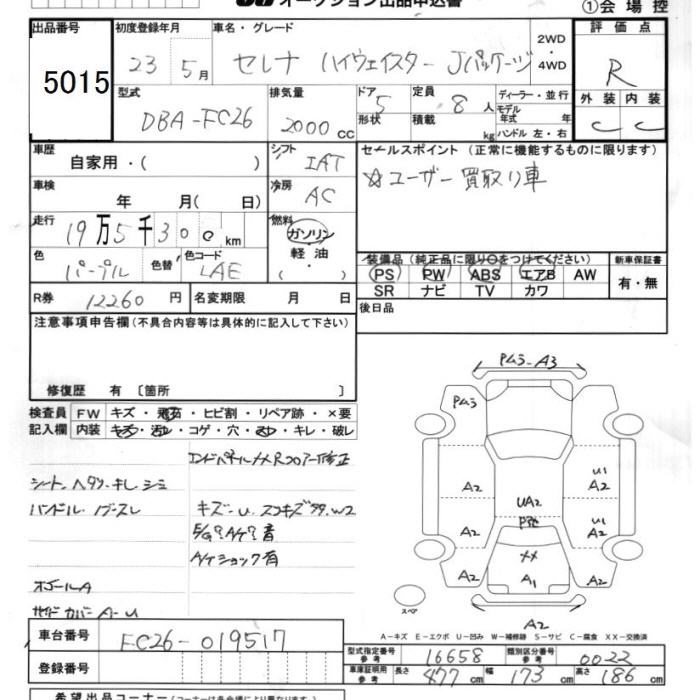 オークション出品申込書
①会場控
出品番号
5015
初度登録年月
23 5月
車名・グレード
セレナ ハイウェイスター Jパッケージ
2WD
・
4WD
評価点
R
型式
DBA-FC26
排気量
2000 cc
ドア 5
形状
定員 8人
積載 kg
ディーラー・並行
モデル
年式 年
ハンドル 左・右
外装 内装
C C
車歴
自家用・( )
シフト
IAT
セールスポイント (正常に機能するものに限ります)
☆ユーザー買取り車
車検
年 月( 日)
冷房
AC
走行
19万5千300km
燃料
ガソリン
軽油
( ・ )
色
パープル
色替
色コード
LAE
装備品 (純正品に限り○をつけてください)
PS PW ABS エアB AW
SR ナビ TV カワ
新車保証書
有・無
R券 12260円
名変期限 月 日
後日品
注意事項申告欄(不具合内容等は具体的に記入して下さい)
修復歴 有 〔箇所 〕
検査員
記入欄
FW キズ・飛石・ヒビ割・リペア跡・×要
内装 キズ・汚れ・コゲ・穴・ キレ・破レ
エンドパネルXX Rフロアー修正
シート ヘタリ・キレ・シミ
ハンドル・ノブスレ
キズ-U
E/G? A/T? 音
A/Tショック有
A-U
PムラーA3
Pムラ
A2
A2
A2
UA2
XX
A1
U1
A2
U1
A2
A2
A2
スペア
A-キズ E-エクボ U-凹み W-補修跡 S-サビ C-腐食 XX-交換済
車台番号
FC26-019517
登録番号
型式指定番号
参考
16658
類別区分番号
参考
0022
車庫証明用
参考
長さ 477cm 幅 173cm 高さ 186cm
希望出品コーナー